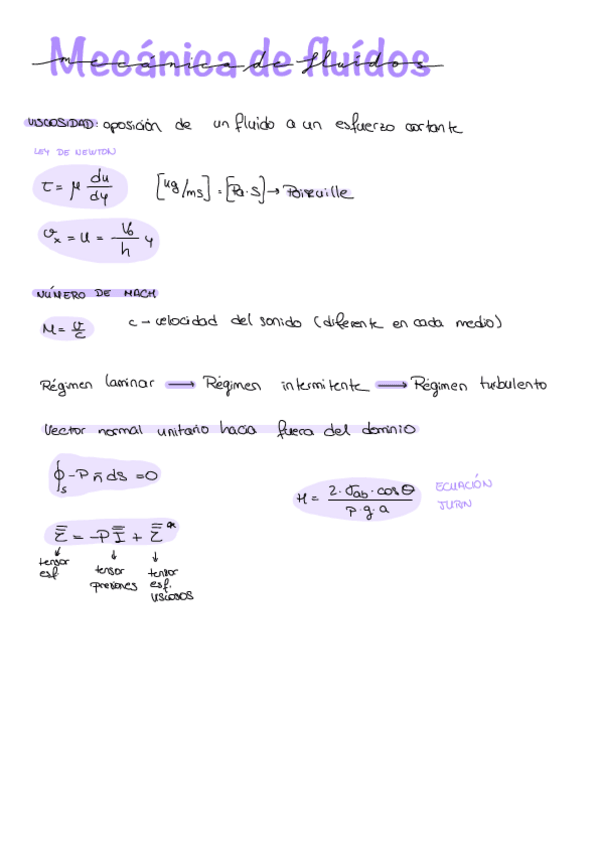 Mecánica de fluídos
mecánica de fluídos
VISCOSIDAD: oposición de un fluido a un esfuerzo cortante
LEY DE NEWTON
τ = μ du/dy [kg/ms] = [Pa·s] → Poiseuille
v_x = u = V_0/h y
NÚMERO DE MACH
M = v/c c → velocidad del sonido (diferente en cada medio)
Régimen laminar → Régimen intermitente → Régimen turbulento
Vector normal unitario hacia fuera del dominio
∮_S -P n̄ ds = 0
H = 2·σ_ab·cosθ / ρ·g·a ECUACIÓN JURIN
τ̿ = -P I̿ + τ̿
tensor esf. tensor presiones tensor esf. viscosos